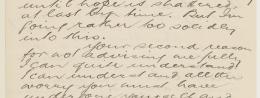 until hope is shattered,
at last by time. But I'm
going rather too solidly
into this.
Your second reason
for not advising me fully
I can quite understand.
I can understand all the
worry you must have
undergone yourself and